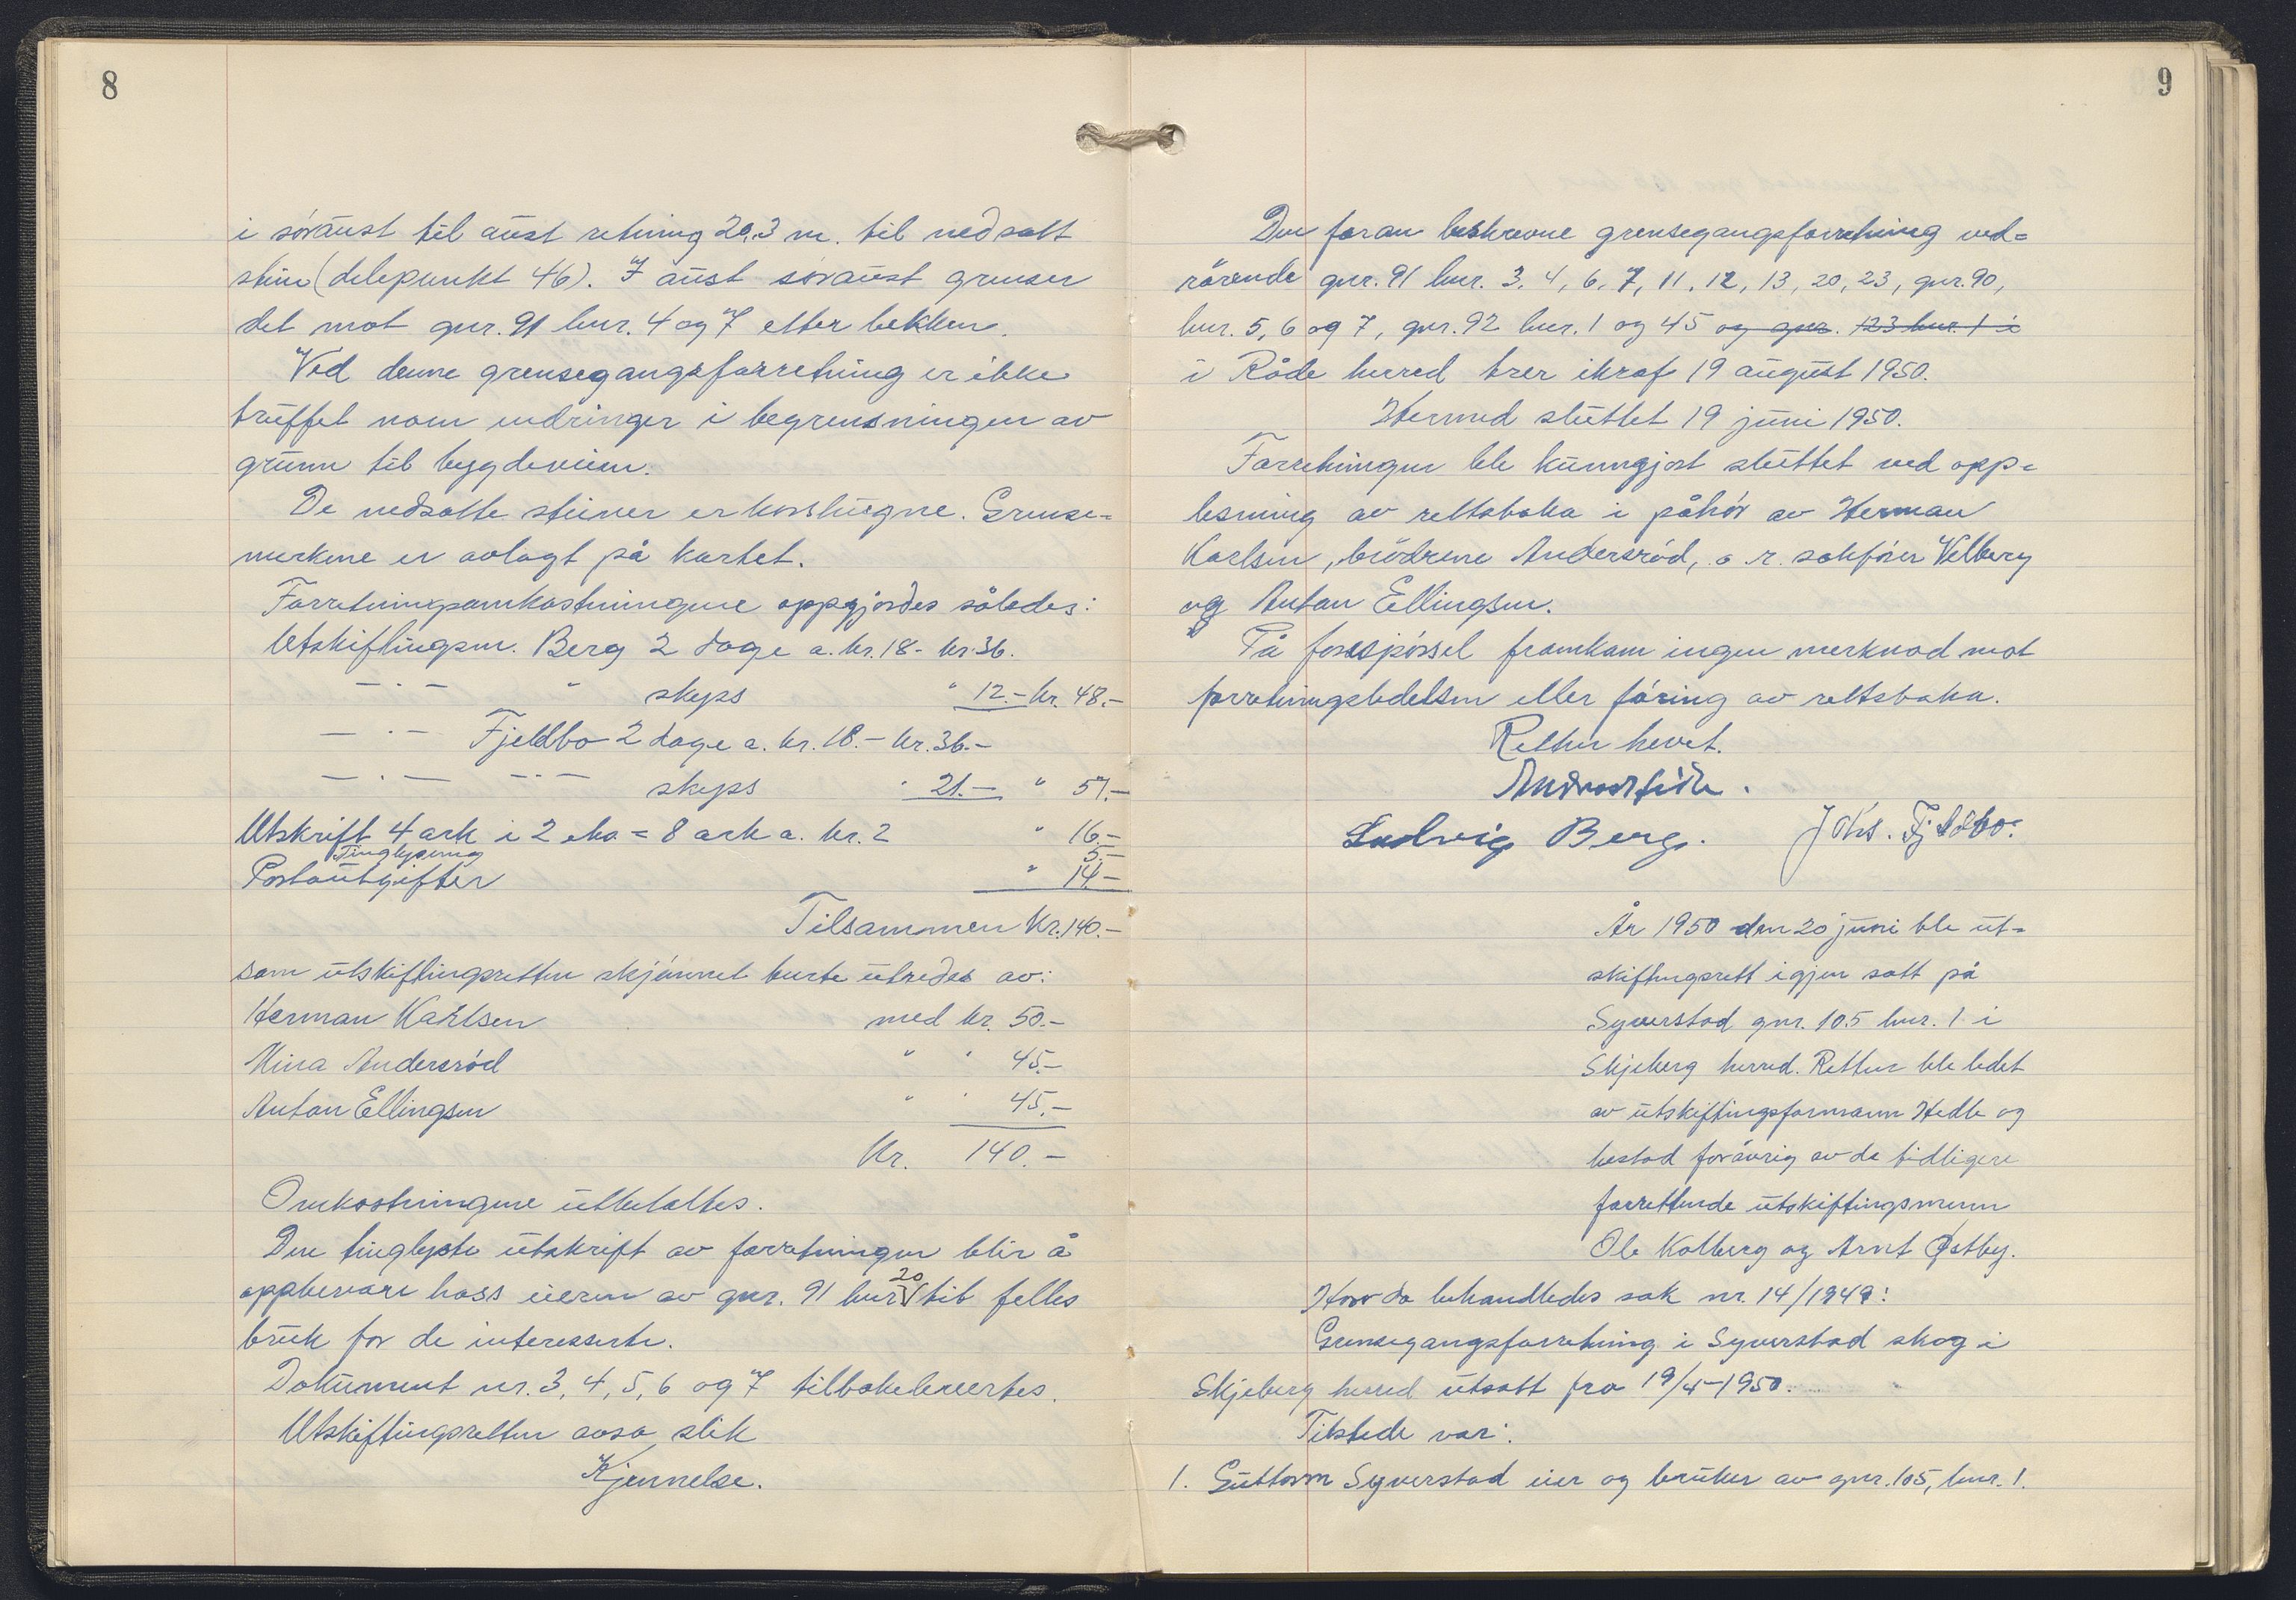 8
i søraust til aust retning 20,3 m. til nedsatt
stein (delepunkt 46). I aust søraust grenser
det mot gnr. 91 bnr. 4 og 7 etter bekken.
Ved denne grensegangsforretning er ikke
truffet noen endringer i begrensningen av
grunn til bygdeveien.
De nedsatte steiner er korshugne. Grense-
merkene er avlagt på kartet.
Forretningsomkostningene oppgjordes således:
Utskiftingsm. Berg 2 dage a. kr. 18.- kr. 36.
— · — " skyss " 12.- kr. 48.-
— · — Fjeldbo 2 dage a. kr. 18.- kr. 36.-
— · — — · — skyss " 21.- " 57.-
Utskrift 4 ark i 2 eks = 8 ark a. kr. 2 " 16.-
Tinglysning 5.-
Postoutgifter " 14.-
Tilsammen Kr. 140.-
som utskiftingsretten skjønnet burte utredes av:
Herman Karlsen med kr. 50.-
Mina Andersrød " " 45.-
Anton Ellingsen " " 45.-
Kr. 140.-
Omkostningene utbetaltes.
Den tinglyste utskrift av forretningen blir å
oppbevare hoss eieren av gnr. 91 bnr 20 til felles
bruk for de interesserte.
Dokument nr. 3, 4, 5, 6 og 7 tilbakelevertes.
Utskiftingsretten avsa slik
Kjennelse.
9
Den foran beskrevne grensegangsforretning ved-
rørende gnr. 91 bnr. 3, 4, 6, 7, 11, 12, 13, 20, 23, gnr. 90,
bnr. 5, 6 og 7, gnr. 92 bnr. 1 og 45 og gnr. 123 bnr. 1 i
i Råde herred trer ikraf 19 august 1950.
Hermed sluttet 19 juni 1950.
Forretningen ble kunngjort sluttet ved opp-
lesning av rettsboka i påhør av Herman
Karlsen, brødrene Andersrød, o. r. sakfører Velberg
og Anton Ellingsen.
På forespørsel framkom ingen merknad mot
forretningsledelsen eller føring av rettsboka.
Retten hevet.
Ludvig Berg. Johs. Fjeldbo.
År 1950 den 20 juni ble ut-
skiftingsrett igjen satt på
Syverstad gnr. 105 bnr. 1 i
Skjeberg herred. Retten ble ledet
av utskiftingsformann Hedle og
bestod forøvrig av de tidligere
forrettende utskiftingsmenn
Ole Kolberg og Arnt Østby.
Hvor da behandledes sak nr. 14/1949:
Grensegangsforretning i Syverstad skog i
Skjeberg herred utsatt fra 19/4-1950.
Tilstede var:
1. Guttorm Syverstad eier og bruker av gnr. 105, bnr. 1.